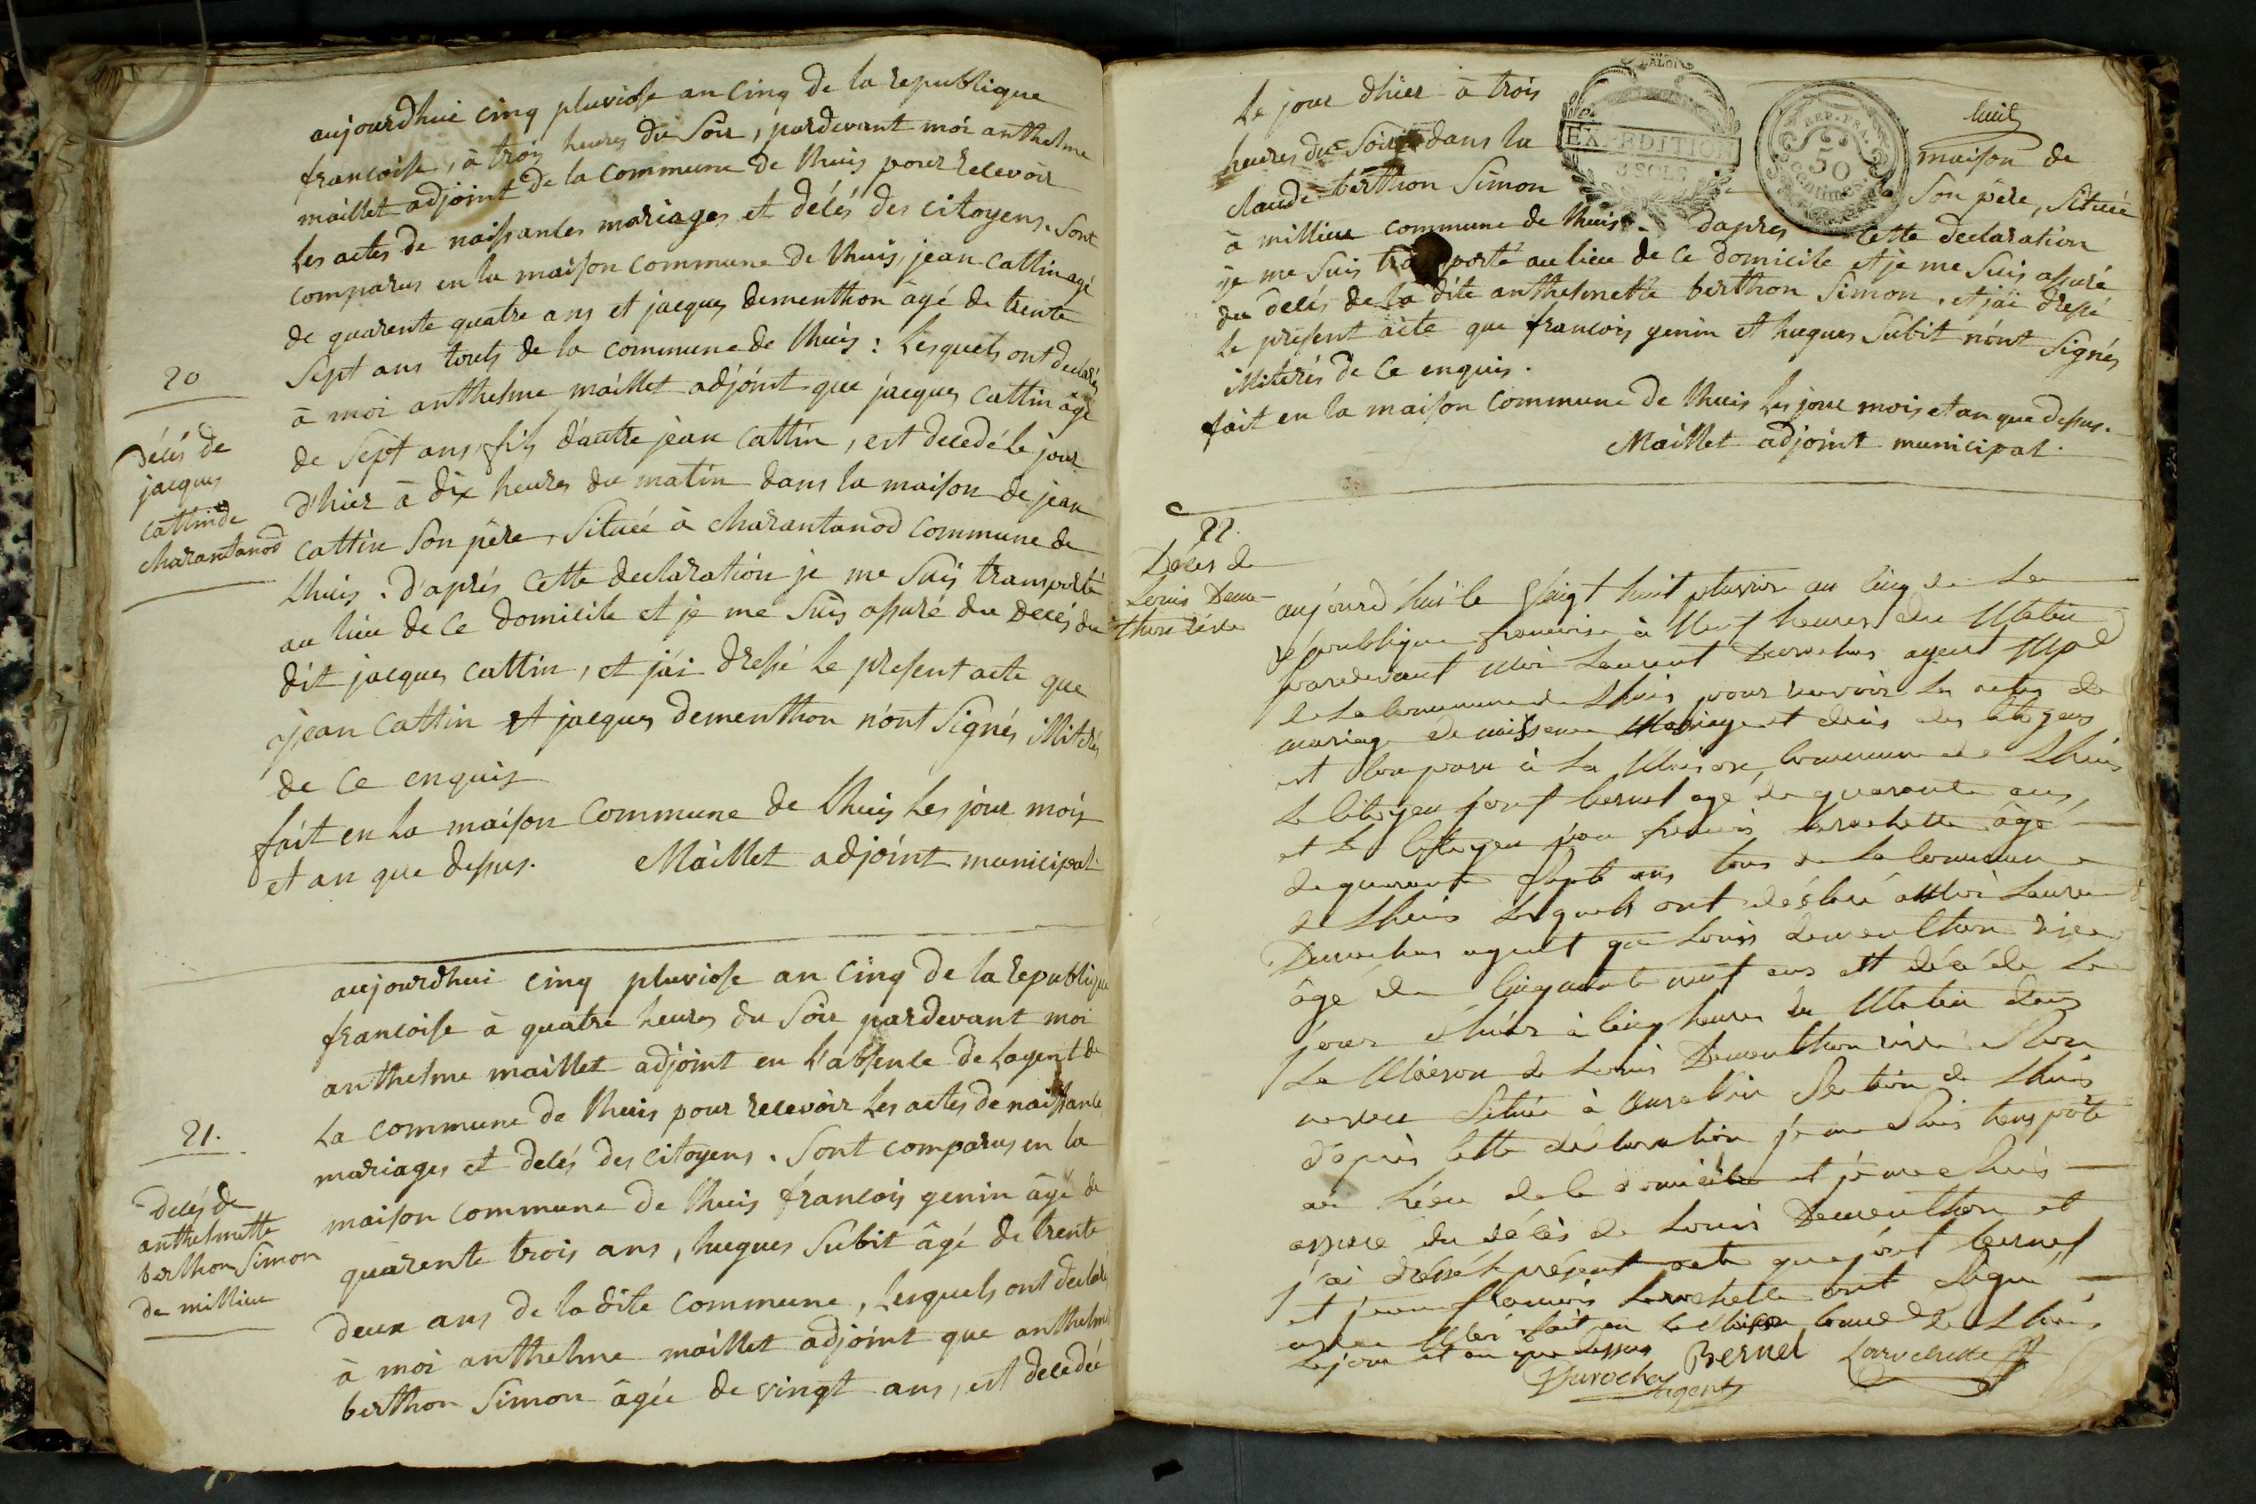 aujourdhui cinq pluviose an cinq de la republique
francoise, à trois heures du soir, pardevant moi anthelme
maillet adjoint de la commune de lhuis pour recevoir
les actes de naissances mariages et décés des citoyens. sont
comparus en la maison commune de lhuis, jean cattin agé
de quarente quatre ans et jacques dementhon âgé de trente
20
sept ans touts de la commune de lhuis : lesquels ont declarés
à moi anthelme maillet adjoint que jacques cattin âgé
décés de
jacques
cattin de
charantanod
de sept ans, fils d'autre jean cattin, est decedé le jour
d'hier à dix heures du matin dans la maison de jean
cattin son père, située à charantanod commune de
lhuis. d'aprés cette declaration je me suis transporté
au lieu de ce domicile et je me suis assuré du decés du
dit jacques cattin, et j'ai dressé le present acte que
jean cattin et jacques dementhon n'ont signés illitérés
de ce enquis
fait en la maison commune de lhuis les jour mois
et an que dessus. Maillet adjoint municipal.
aujourdhui cinq pluviose an cinq de la republique
francoise à quatre heures du soir pardevant moi
anthelme maillet adjoint en l'absence de lagent de
la commune de lhuis pour recevoir les actes de naissance
21.
mariages et decés des citoyens. sont comparus en la
maison commune de lhuis francois genin âgé de
decés de
anthelmette
berthon simon
de millieu
quarente trois ans, hugues subit âgé de trente
deux ans de la dite commune, lesquels ont declarés
à moi anthelme maillet adjoint que anthelme
berthon simon âgée de vingt ans, est decedée
le jour dhier à trois
heures du soir dans la maison de
claude berthon simon son père, située
EXPEDITION
3 SOLS
REP. FRA.
50
Centimes
huit
à millieu commune de lhuis. dapres cette declaration
je me suis transporté au lieu de ce domicile et je me suis assuré
du decés de la dite anthelmette berthon simon, et jai dressé
le present acte que francois genin et hugues subit n'ont signés
illiterés de ce enquis.
fait en la maison commune de lhuis les jour mois et an que dessus.
Maillet adjoint municipal.
22.
Décès de
Louis Demen-
thon
aujourd'huis le vingt huit pluviose an cinq de la
république francoise à neuf heures du Matin
pardevant Moi Laurent Durochas agent Mpal
de la commune de Lhuis pour recevoir les actes de
mariage de naissance Mariage et décés des citoyens
est comparu à la Maison commune de Lhuis
le citoyen josef bernel agé de quarante ans
et le citoyen jean francois Larochette âgé
de quarante sept ans tous de la commune
de Lhuis lesquels ont déclaré a Moi Laurent
Durochas agent que Louis dementhon
âgé de cinquante neuf ans est décédé le
jour d'hiér à cinq heures du Matin dans
la Maison de Louis Dementhon son
neveu située à section de Lhuis
d'aprés cette déclaration je me suis transporté
au lieu de le domicile et je me suis
assure du décès de Louis Dementhon et
j'ai dréssé le présent acte que josef bernel
et jean francois Larochette ont signé
avec Moi fait en la Maison comune de Lhuis
le jour et an que dessus Bernel Larochette
Durochas agent